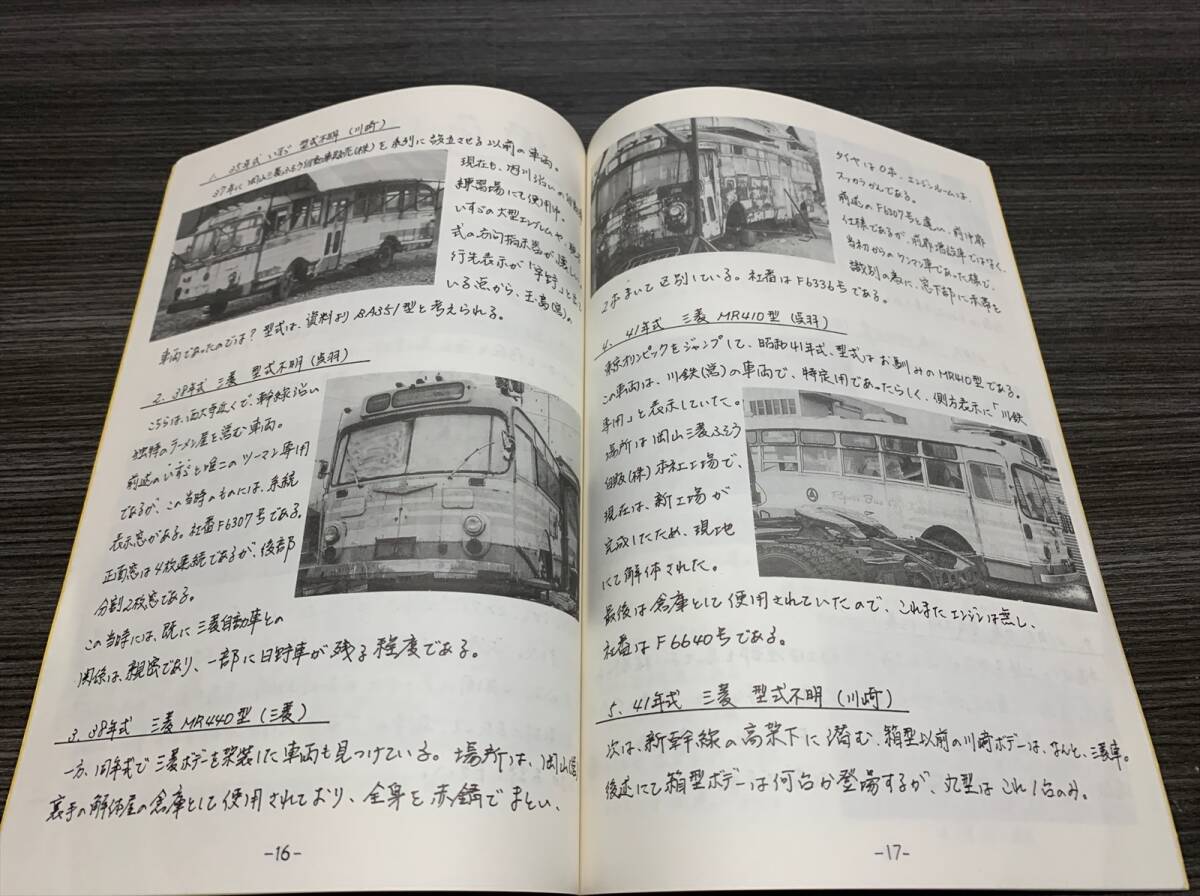 1. 35年式 いすゞ 型式不明 (川崎)
37年に 岡山三菱ふそう自動車販売(株)を系列に設立させる以前の車両。
現在も、旭川沿いの自動車
練習場にて使用中。
いすゞの大型エンブレムや、
式の方向指示器が懐しい。
行先表示が「宇野」となって
いる点から、玉・高(営)の
車両であったのでは? 型式は、資料よりBA351型と考えられる。
2. 38年式 三菱 型式不明 (呉羽)
こちらは、西大寺近くで、幹線沿い
独特のラーメン屋を営む車両。
前述のいすゞと唯二のツーマン専用
であるが、この当時のものには、系統
表示窓がある。社番F6307号である。
正面窓は4枚連続であるが、後部
分割2枚窓である。
この当時には、既に三菱自動車との
関係は、親密であり、一部に日野車が残る程度である。
3. 38年式 三菱MR440型 (三菱)
一方、同年式で三菱ボデーを架装した車両も見つけている。場所は、岡山(営)
裏手の解体屋の倉庫として使用されており、全身を赤錆でまとい、
-16-
タイヤは0本、エンジンルームは、
スッカラカンである。
前述のF6307号と違い、前中扉
仕様であるが、前扉増設車ではなく、
当初からのワンマン車であった様で、
識別の為に、窓下部に赤帯を
2本まいて区別している。社番はF6336号である。
4. 41年式 三菱 MR410型 (呉羽)
東京オリンピックをジャンプして、昭和41年式、型式はお馴みのMR410型である。
この車両は、川鉄(営)の車両で、特定用であったらしく、側方表示に「川鉄
専用」と表示していた。
場所は岡山三菱ふそう
自販(株)本社工場で、
現在は、新工場が
完成したため、現地
にて解体された。
最後は倉庫として使用されていたので、これまたエンジンは無し、
社番はF6640号である。
5. 41年式 三菱 型式不明 (川崎)
次は、新幹線の高架下に潜む、箱型以前の川崎ボデーは、なんと、三菱車。
後述にて箱型ボデーは何台か登場するが、丸型はこれ1台のみ。
-17-